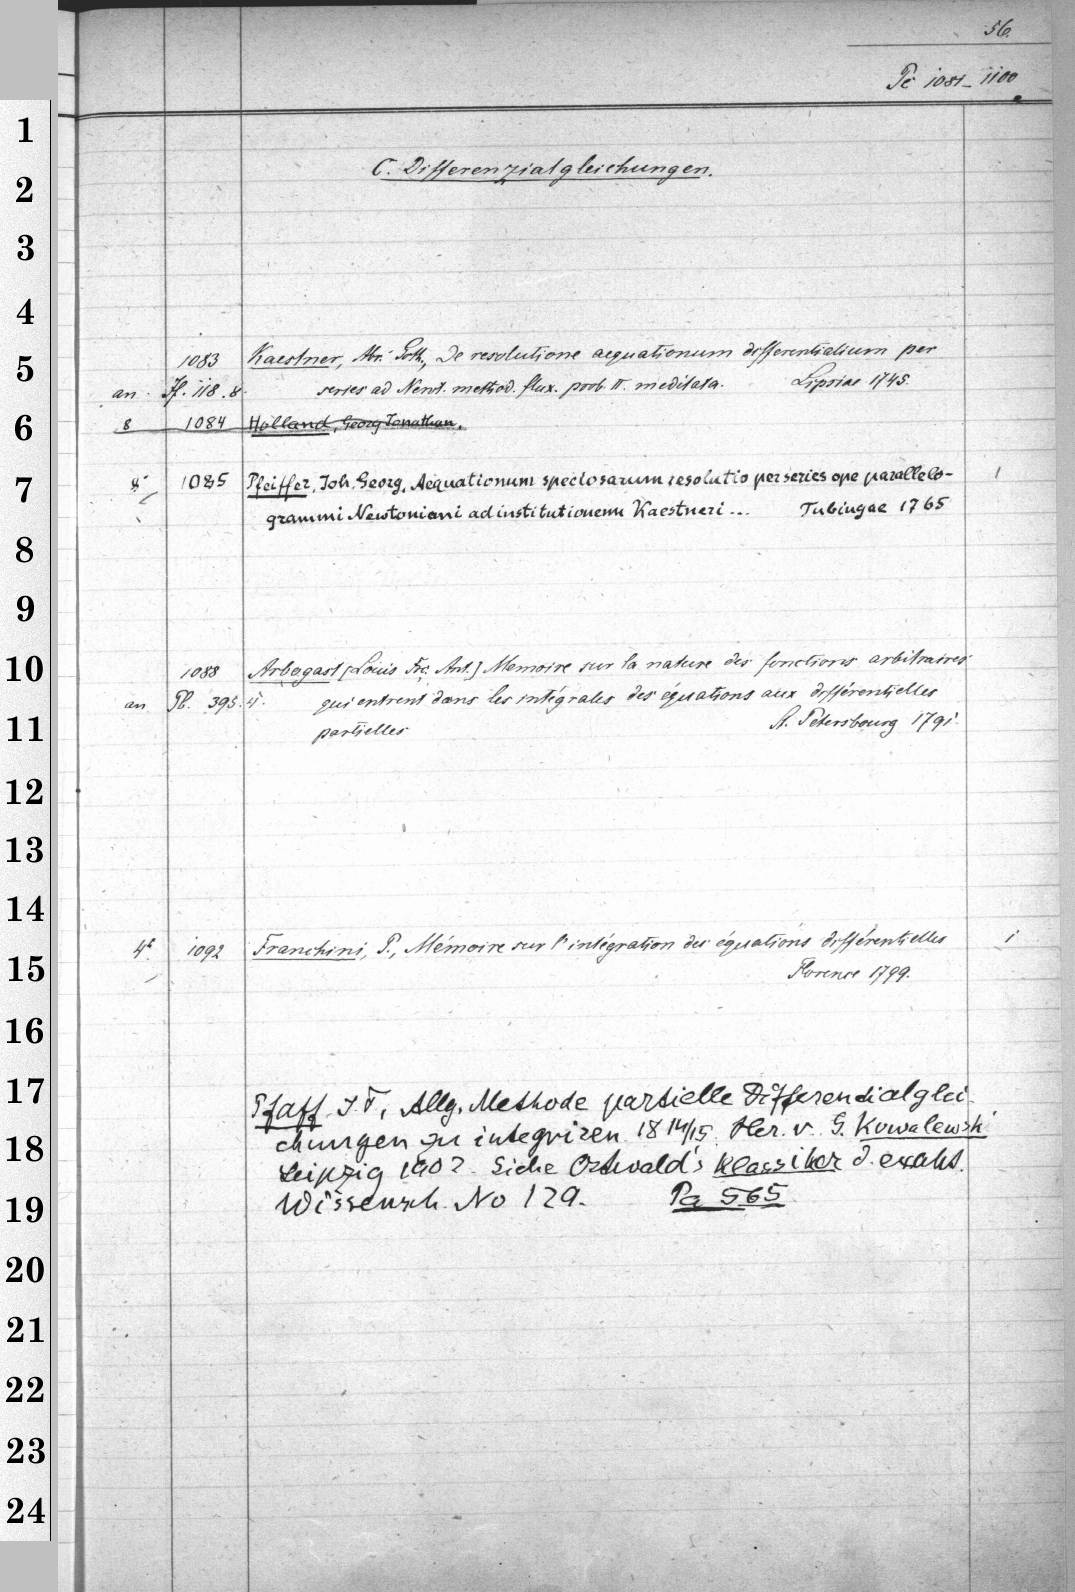 56.
Pc 1081-1100
C. Differenzialgleichungen.
1083 Kaestner, Abr. Goth., De resolutione aequationum differentialium per
an Pf. 118. 8. series ad Newt. method. flux. prob. II. meditata. Lipsiae 1745.
8 1084 Holland, Georg Jonathan.
8° 1085 Pfeiffer, Joh. Georg, Aequationum speciosarum resolutio per series ope parallelo- 1
grammi Newtoniani ad institutionem Kaestneri ... Tubingae 1765
1088 Arbogast [Louis Frç. Ant.] Memoire sur la nature des fonctions arbitraires
an Pb. 395. 4°. qui entrent dans les intégrales des équations aux différentielles
partielles St. Petersbourg 1791.
4° 1092 Franchini, P., Mémoire sur l'intégration des équations différentielles 1
Florence 1799.
Pfaff J. F., Allg. Methode partielle Differendialglei-
chungen zu integriren 1814/15. Her. v. G. Kowalewski
Leipzig 1902. Siehe Ostwald's Klassiker d. exakt.
Wissensch. No 129. Pa 565
1
2
3
4
5
6
7
8
9
10
11
12
13
14
15
16
17
18
19
20
21
22
23
24